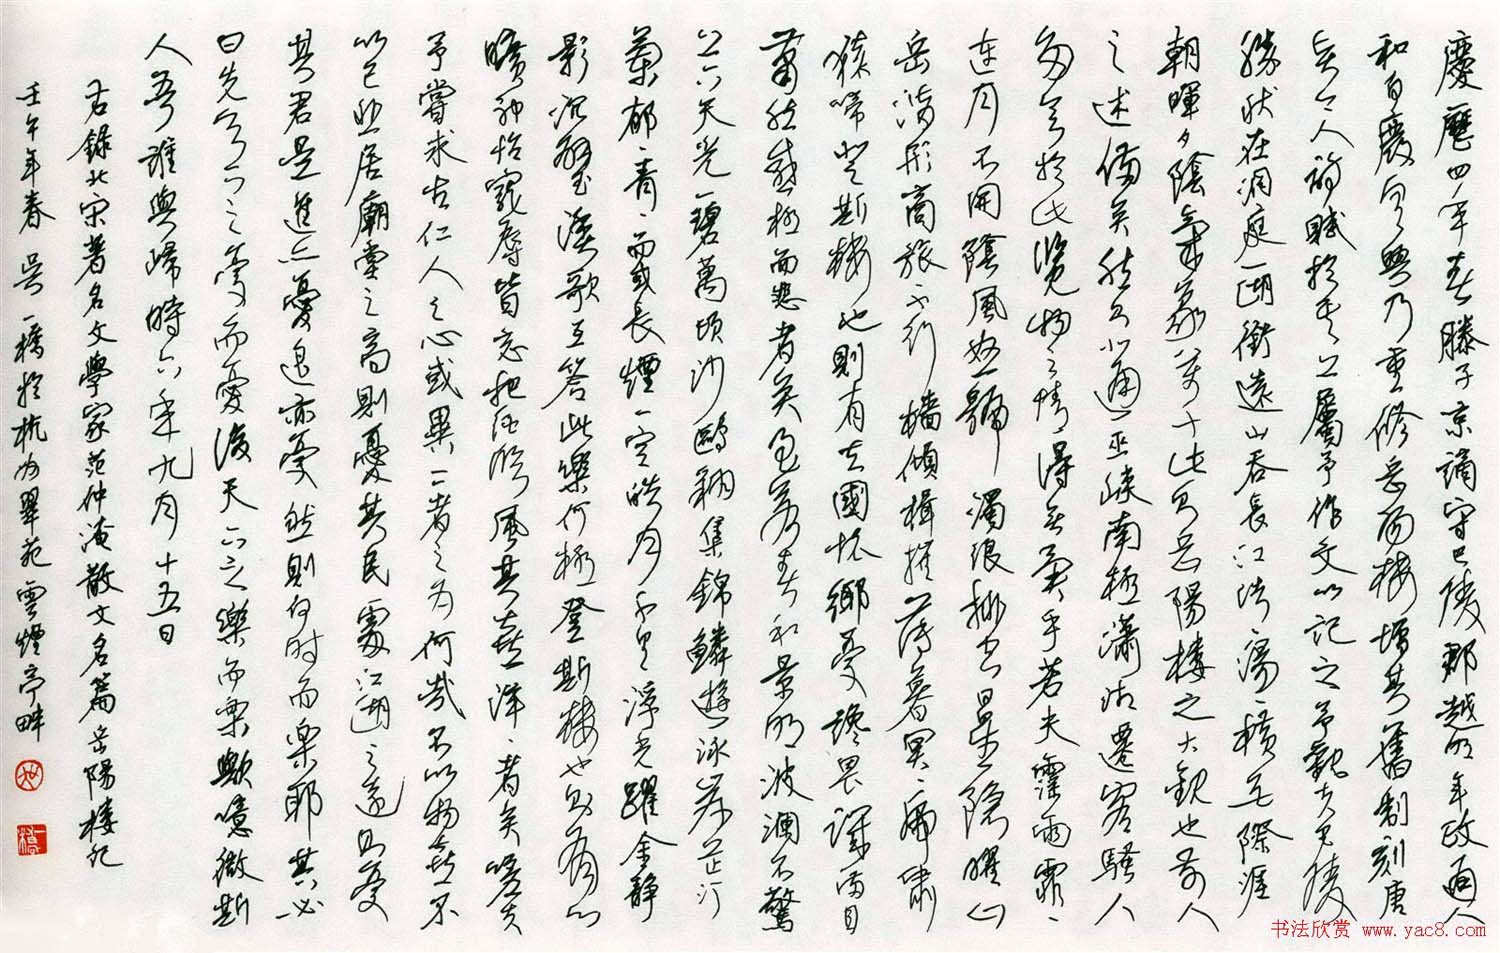 慶歷四年春滕子京謫守巴陵郡越明年政通人
和百廢具興乃重修岳陽樓增其舊制刻唐
賢今人詩賦於其上屬予作文以記之予觀夫巴陵
勝狀在洞庭一湖銜遠山吞長江浩〻湯〻橫無際涯
朝暉夕陰氣象萬千此則岳陽樓之大觀也前人
之述備矣然則北通巫峽南極瀟湘遷客騷人
多會於此覽物之情得無異乎若夫霪雨霏〻
連月不開陰風怒號濁浪排空日星隱曜山
岳潛形商旅不行檣傾楫摧薄暮冥〻虎嘯
猿啼登斯樓也則有去國懷鄉憂讒畏譏滿目
蕭然感極而悲者矣至若春和景明波瀾不驚
上下天光一碧萬頃沙鷗翔集錦鱗游泳岸芷汀
蘭郁〻青〻而或長煙一空皓月千里浮光躍金靜
影沉璧漁歌互答此樂何極登斯樓也則有心
曠神怡寵辱皆忘把酒臨風其喜洋〻者矣嗟夫
予嘗求古仁人之心或異二者之為何哉不以物喜不
以己悲居廟堂之高則憂其民處江湖之遠則憂
其君是進亦憂退亦憂然則何時而樂耶其必
曰先天下之憂而憂後天下之樂而樂歟噫微斯
人吾誰與歸時六年九月十五日
右錄北宋著名文學家范仲淹散文名篇岳陽樓記
壬午年春 吳一橋於杭州翠苑雲煙亭畔
书法欣赏 www.yac8.com